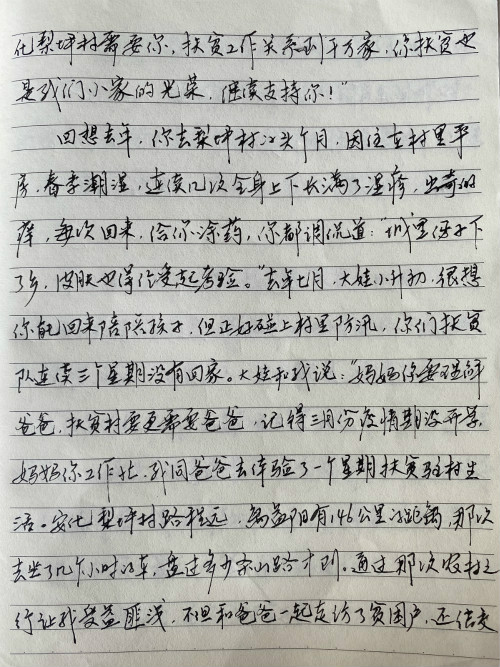 化梨坪村需要你，扶贫工作关系到千万家，你扶贫也
是我们小家的光荣，继续支持你！”
回想去年，你去梨坪村的头个月，因住在村里平
房，春季潮湿，连续几次全身上下长满了湿疹，出奇的
痒，每次回来，给你涂药，你都调侃道：“城里伢子下
了乡，皮肤也得经受起考验。”去年七月，大娃小升初，很想
你能回来陪陪孩子，但正好碰上村里防汛，你们扶贫
队连续三个星期没有回家。大娃和我说：“妈妈你要理解
爸爸，扶贫村要更需要爸爸，记得三月份疫情期没开学，
妈妈你工作忙，我同爸爸去体验了一个星期扶贫驻村生
活。安化梨坪村路程远，离益阳有146公里的距离，那次
去坐了几个小时的车，盘过多少条山路才到。通过那次驻村之
行让我受益匪浅，不但和爸爸一起走访了贫困户，还结交